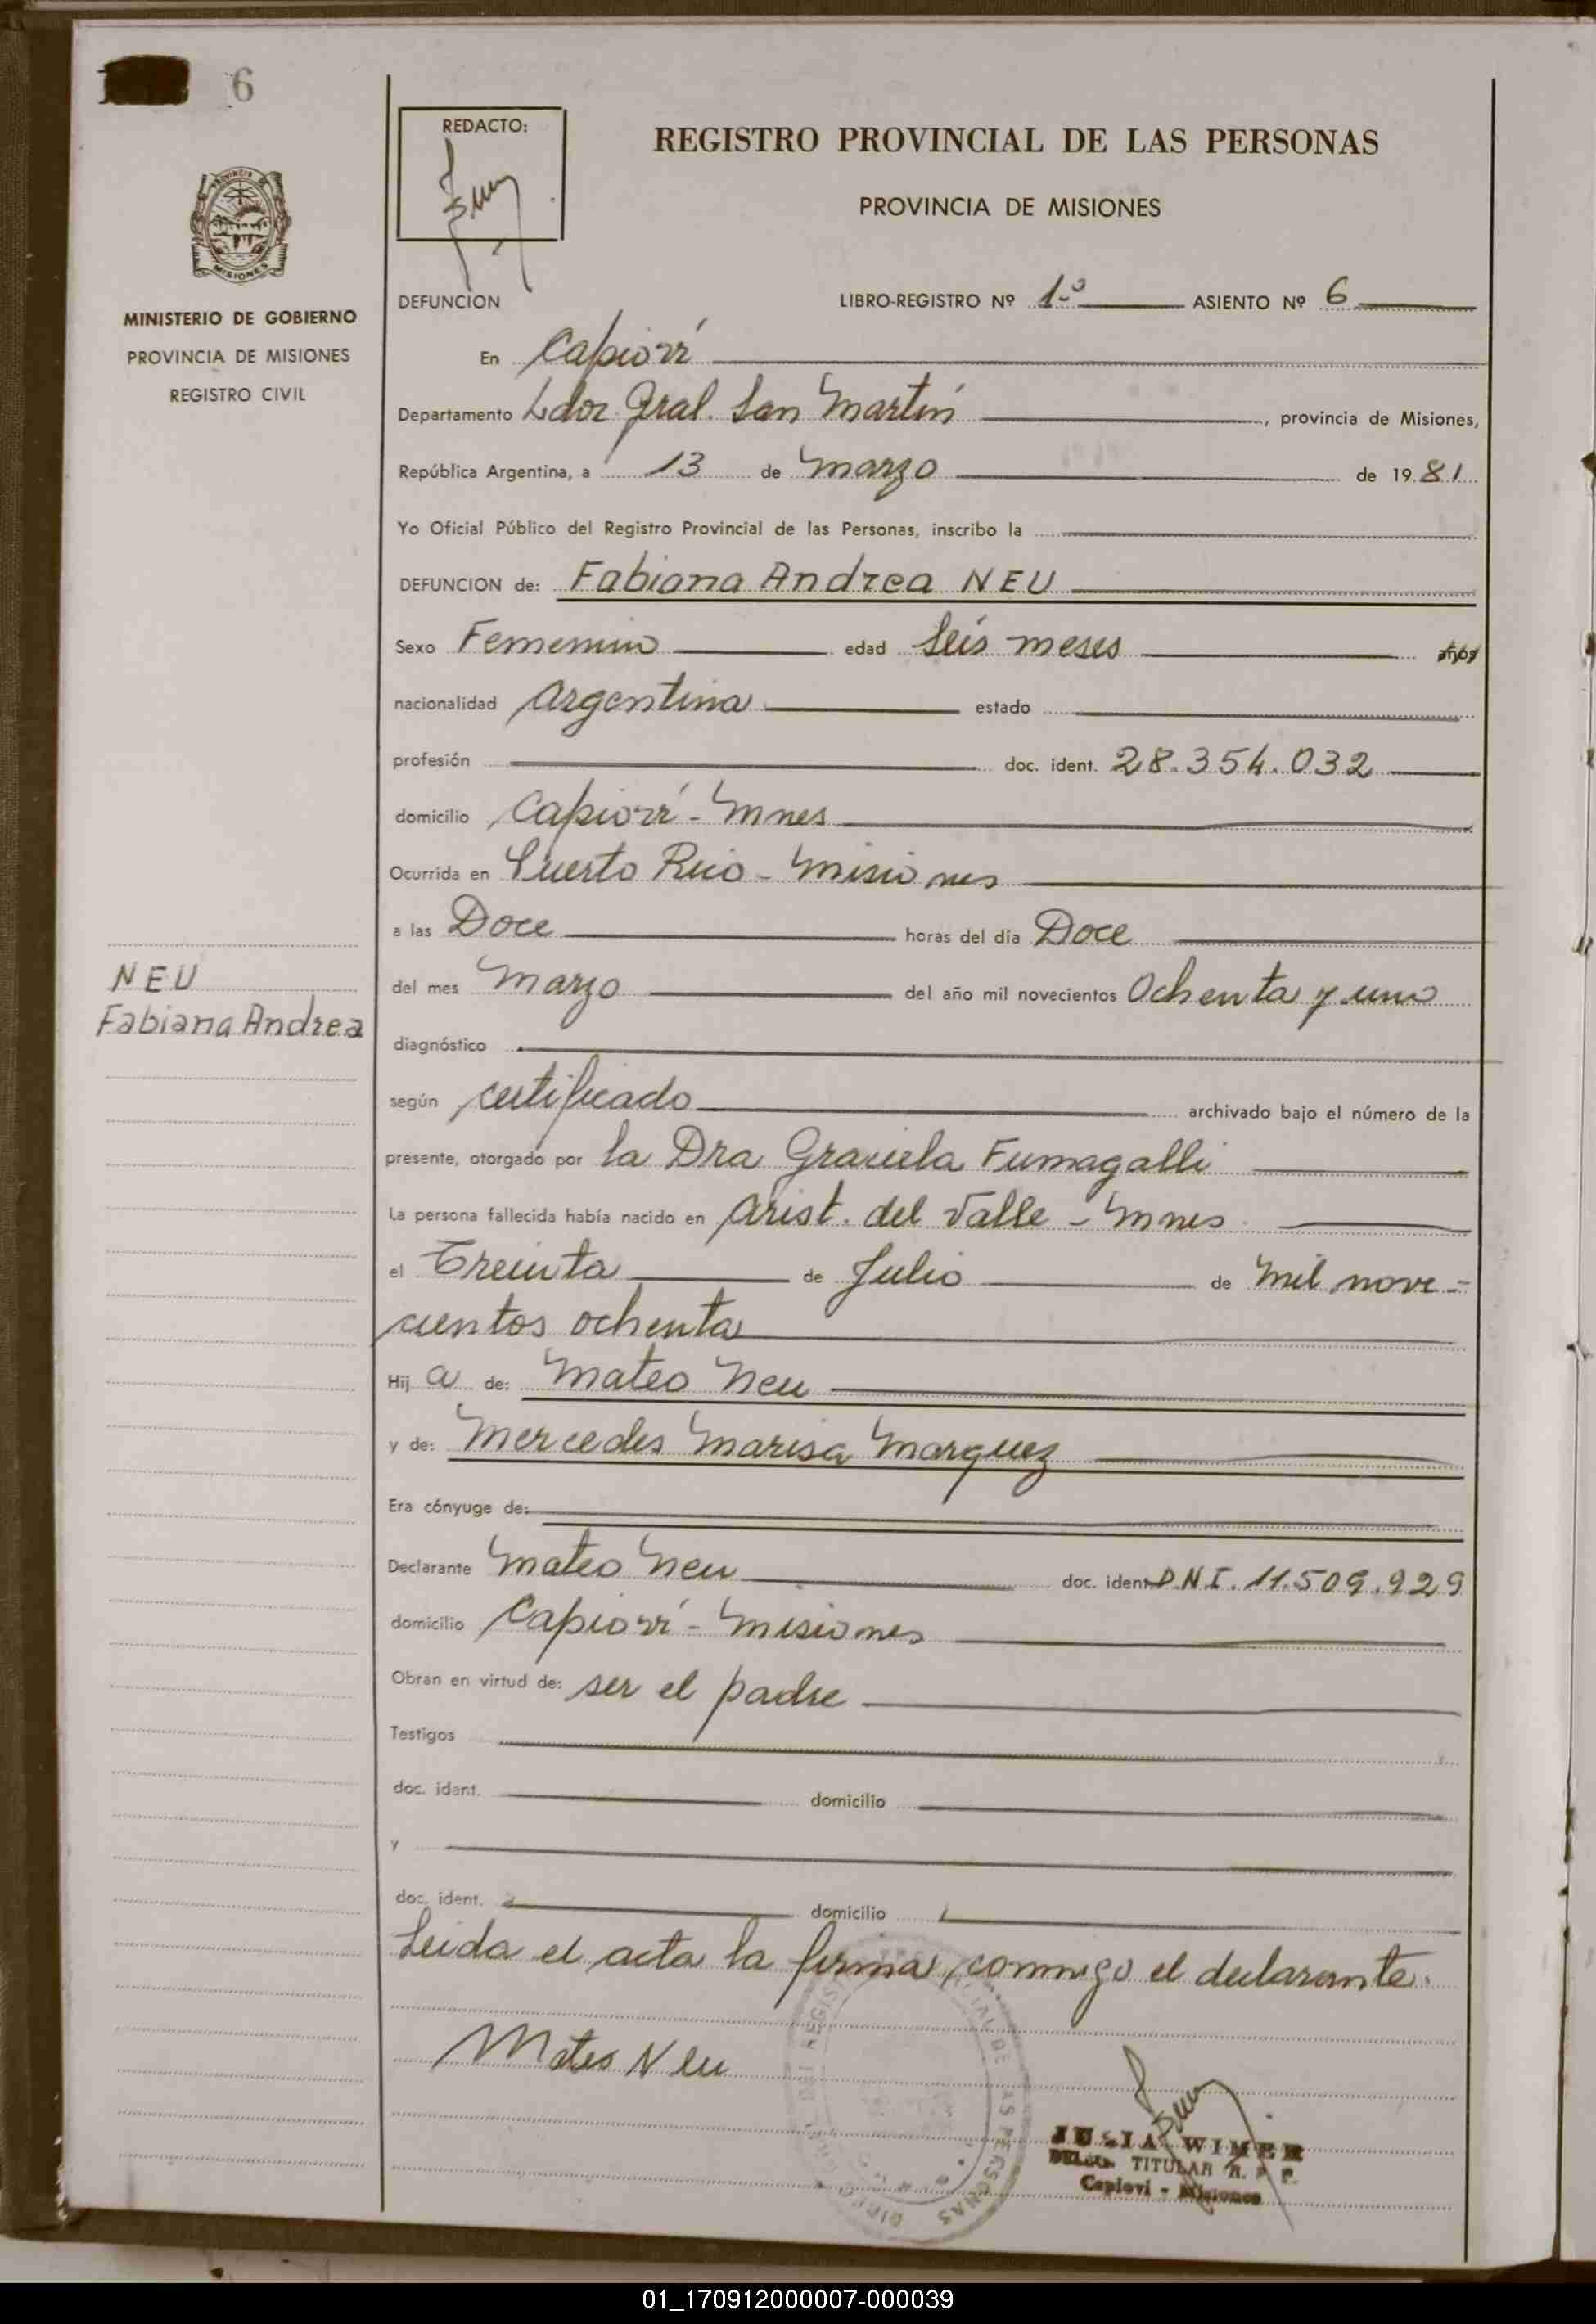 6
REDACTO:
REGISTRO PROVINCIAL DE LAS PERSONAS
PROVINCIA DE MISIONES
MISIONES
MINISTERIO DE GOBIERNO
PROVINCIA DE MISIONES
REGISTRO CIVIL
DEFUNCION LIBRO-REGISTRO Nº 1º ASIENTO Nº 6
En Capiovi
Departamento Ldor Gral. San Martín, provincia de Misiones,
República Argentina, a 13 de Marzo de 1981
Yo Oficial Público del Registro Provincial de las Personas, inscribo la
DEFUNCION de: Fabiana Andrea NEU
Sexo Femenino edad Seis meses años
nacionalidad Argentina estado
profesión doc. ident. 28.354.032
domicilio Capioví - Mnes
Ocurrida en Puerto Rico - Misiones
a las Doce horas del día Doce
NEU
Fabiana Andrea
del mes Marzo del año mil novecientos Ochenta y uno
diagnóstico
según certificado archivado bajo el número de la
presente, otorgado por la Dra Graciela Fumagalli
La persona fallecida había nacido en Arist. del Valle - Mnes
el Treinta de Julio de Mil nove-
cientos ochenta
Hij a de: Mateo Neu
y de: Mercedes Marisa Marquez
Era cónyuge de:
Declarante Mateo Neu doc. ident. D.N.I. 11.509.929
domicilio Capioví - Misiones
Obran en virtud de: ser el padre
Testigos
doc. ident. domicilio
y
doc. ident. domicilio
Leida el acta la firma conmigo el declarante.
Mateo Neu
JULIA WIMER
TITULAR R. P. P.
Capiovi - Misiones
01_170912000007-000039